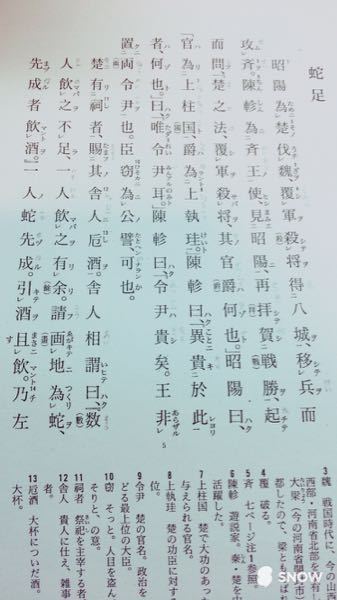 蛇足
昭陽為楚伐魏、覆軍殺将得八城、移兵而
攻斉。陳軫為斉王使、見昭陽、再拝賀戦勝、起
而問、「楚之法、覆軍殺将、其官爵何也。」昭陽曰、
「官為上柱国、爵為上執珪。」陳軫曰、「異貴於此
者、何也。」曰、「唯令尹耳。」陳軫曰、「令尹貴矣。王非
置両令尹也。臣窃為公譬、可也。
楚有祠者、賜其舎人卮酒。舎人相謂曰、『数
人飲之不足、一人飲之有余。請画地為蛇、
先成者飲酒。』一人蛇先成。引酒且飲。乃左
5
3 魏 戦国時代に、今の山西
西部・河南省北部を有し
大梁(今の河南省開封市)
都したので、梁ともよばれ
4 覆 破る。
5 斉 七ページ注1参照。
6 陳軫 遊説家。秦・楚を
活躍した。
7 上柱国 楚で大功のあっ
与えられる官名。
8 上執珪 楚の功臣に対す
位。
9 令尹 楚の官名。政治を
どる最上位の大臣。
10 窃 そっと。人目を盗ん
そりと、の意。
11 祠者 祭祀を主宰する者
12 舎人 貴人に仕え、雑事
者。
13 卮酒 大杯についだ酒。
大杯。
SNOW